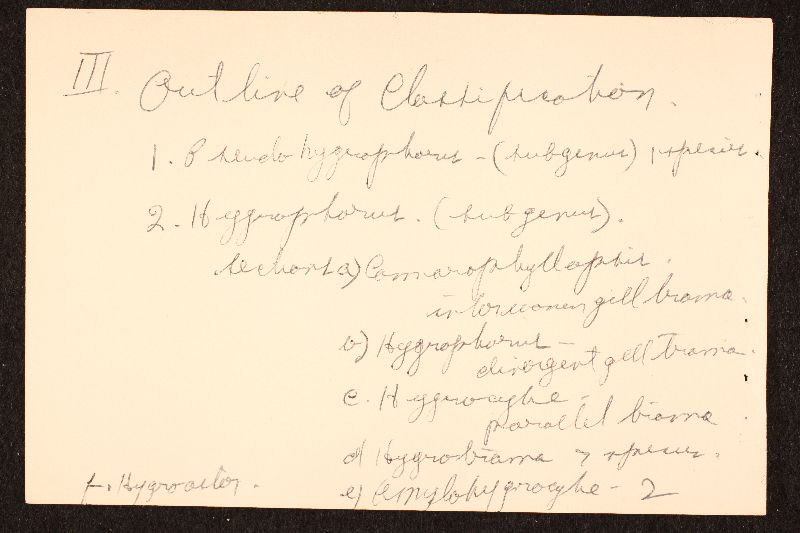 III. Outline of Classification.
1. Pseudohygrophorus - (subgenus) 1 species.
2. Hygrophorus. (subgenus).
sections a) Camarophyllopsis.
interwoven gill trama.
b) Hygrophorus -
divergent gill Trama.
c. Hygrocybe -
parallel trama
d) Hygrotrama 7 species.
e) Amylohygrocybe - 2
f. Hygroaster.